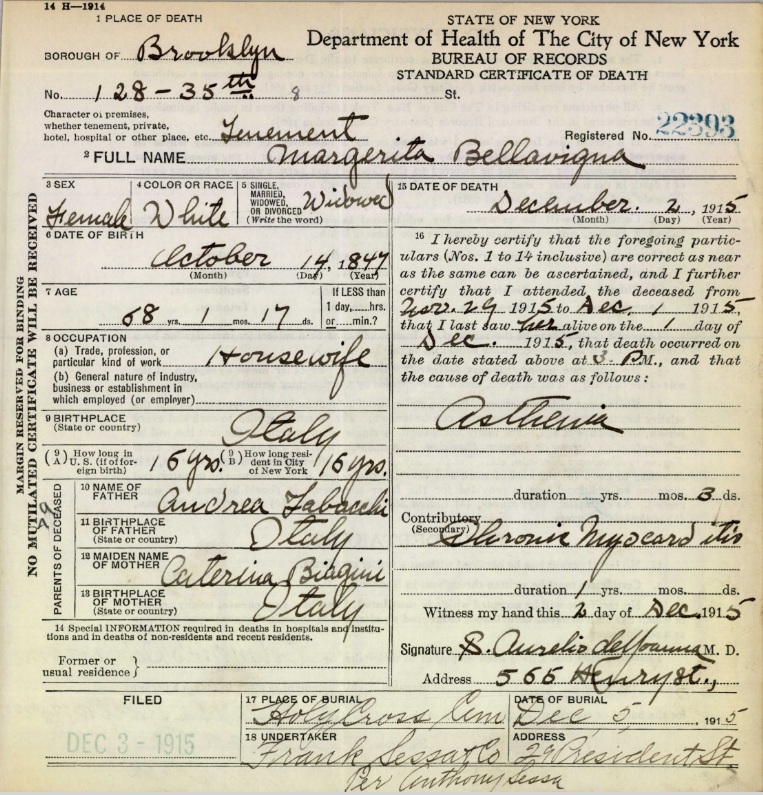 14 H—1914
1 PLACE OF DEATH
STATE OF NEW YORK
Department of Health of The City of New York
BUREAU OF RECORDS
STANDARD CERTIFICATE OF DEATH
BOROUGH OF Brooklyn
No. 128-35th 8 St.
Character of premises,
whether tenement, private,
hotel, hospital or other place, etc. Tenement
Registered No. 22393
2 FULL NAME Margerita Bellavigna
MARGIN RESERVED FOR BINDING
NO MUTILATED CERTIFICATE WILL BE RECEIVED
3 SEX
Female
4 COLOR OR RACE
White
5 SINGLE,
MARRIED,
WIDOWED,
OR DIVORCED
(Write the word)
Widowed
6 DATE OF BIRTH
October 14, 1847
(Month) (Day) (Year)
7 AGE
68 yrs. 1 mos. 17 ds.
If LESS than
1 day,....hrs.
or....min.?
8 OCCUPATION
(a) Trade, profession, or
particular kind of work Housewife
(b) General nature of industry,
business or establishment in
which employed (or employer)
9 BIRTHPLACE
(State or country)
Italy
(9 A) How long in
U. S. (if of for-
eign birth)
15 yrs.
(9 B) How long resi-
dent in City
of New York
15 yrs.
PARENTS OF DECEASED
10 NAME OF
FATHER
Andrea Tabacchi
11 BIRTHPLACE
OF FATHER
(State or country)
Italy
12 MAIDEN NAME
OF MOTHER
Caterina Biagini
13 BIRTHPLACE
OF MOTHER
(State or country)
Italy
14 Special INFORMATION required in deaths in hospitals and institu-
tions and in deaths of non-residents and recent residents.
Former or
usual residence }
15 DATE OF DEATH
December. 2, 1915
(Month) (Day) (Year)
16 I hereby certify that the foregoing partic-
ulars (Nos. 1 to 14 inclusive) are correct as near
as the same can be ascertained, and I further
certify that I attended the deceased from
Nov. 29 1915 to Dec. 1 1915,
that I last saw her alive on the 1 day of
Dec. 1915, that death occurred on
the date stated above at 3 P.M., and that
the cause of death was as follows:
Asthenia
duration yrs. mos. 3 ds.
Contributory
(Secondary)
Chronic Myocarditis
duration 1 yrs. mos. ds.
Witness my hand this 2 day of Dec. 1915
Signature Aurelio M. D.
Address 565 Henry st.,
FILED
DEC 3 - 1915
17 PLACE OF BURIAL
Holy Cross Cem
DATE OF BURIAL
Dec 5, 1915
18 UNDERTAKER
Frank Sessa & Co
ADDRESS
29 President St
Per Anthony Sessa